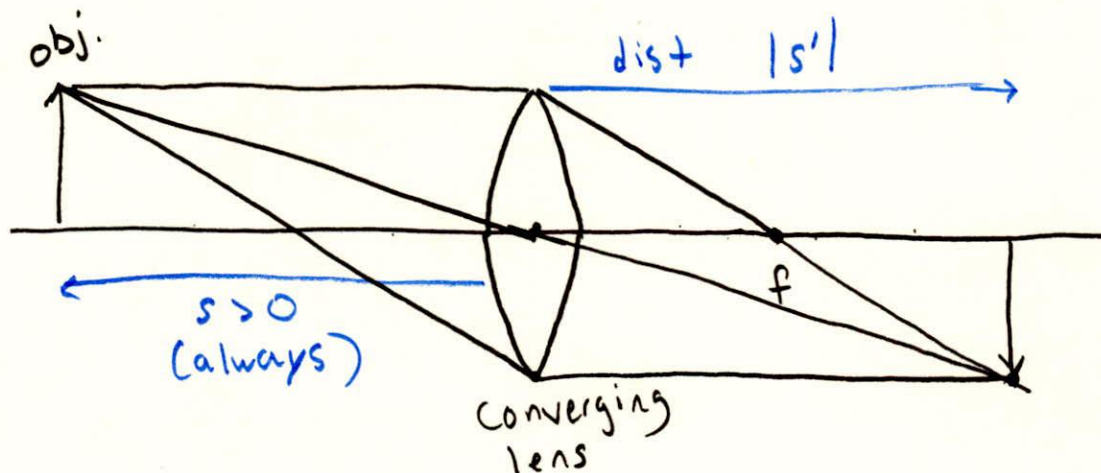 obj.
dist |s'|
f
s > 0
(always)
converging
lens